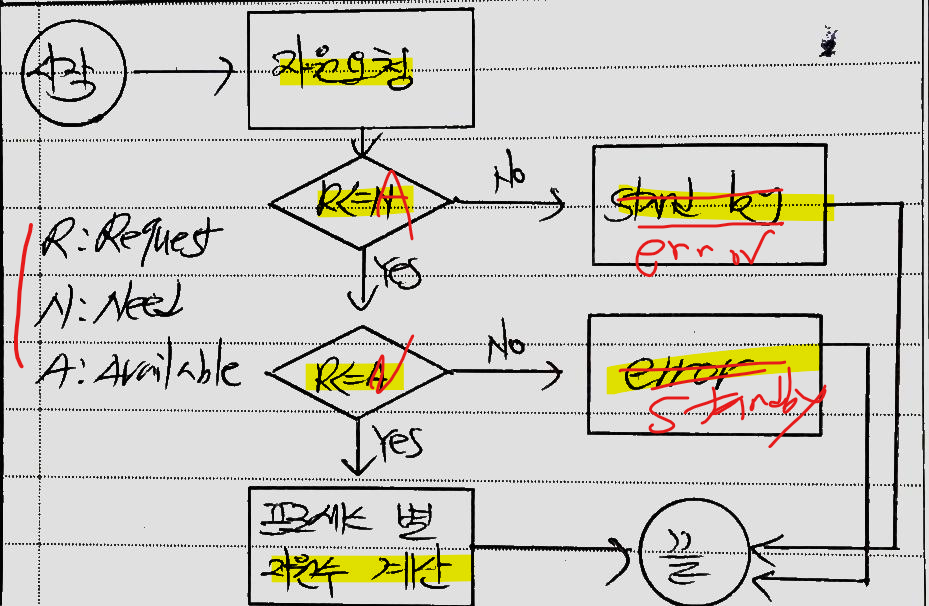 시작
자원요청
R<=N A
No
stand by
error
R: Request
Yes
N: Need
A: Available
R<=A N
No
error
standby
Yes
프로세스 별
자원수 계산
끝